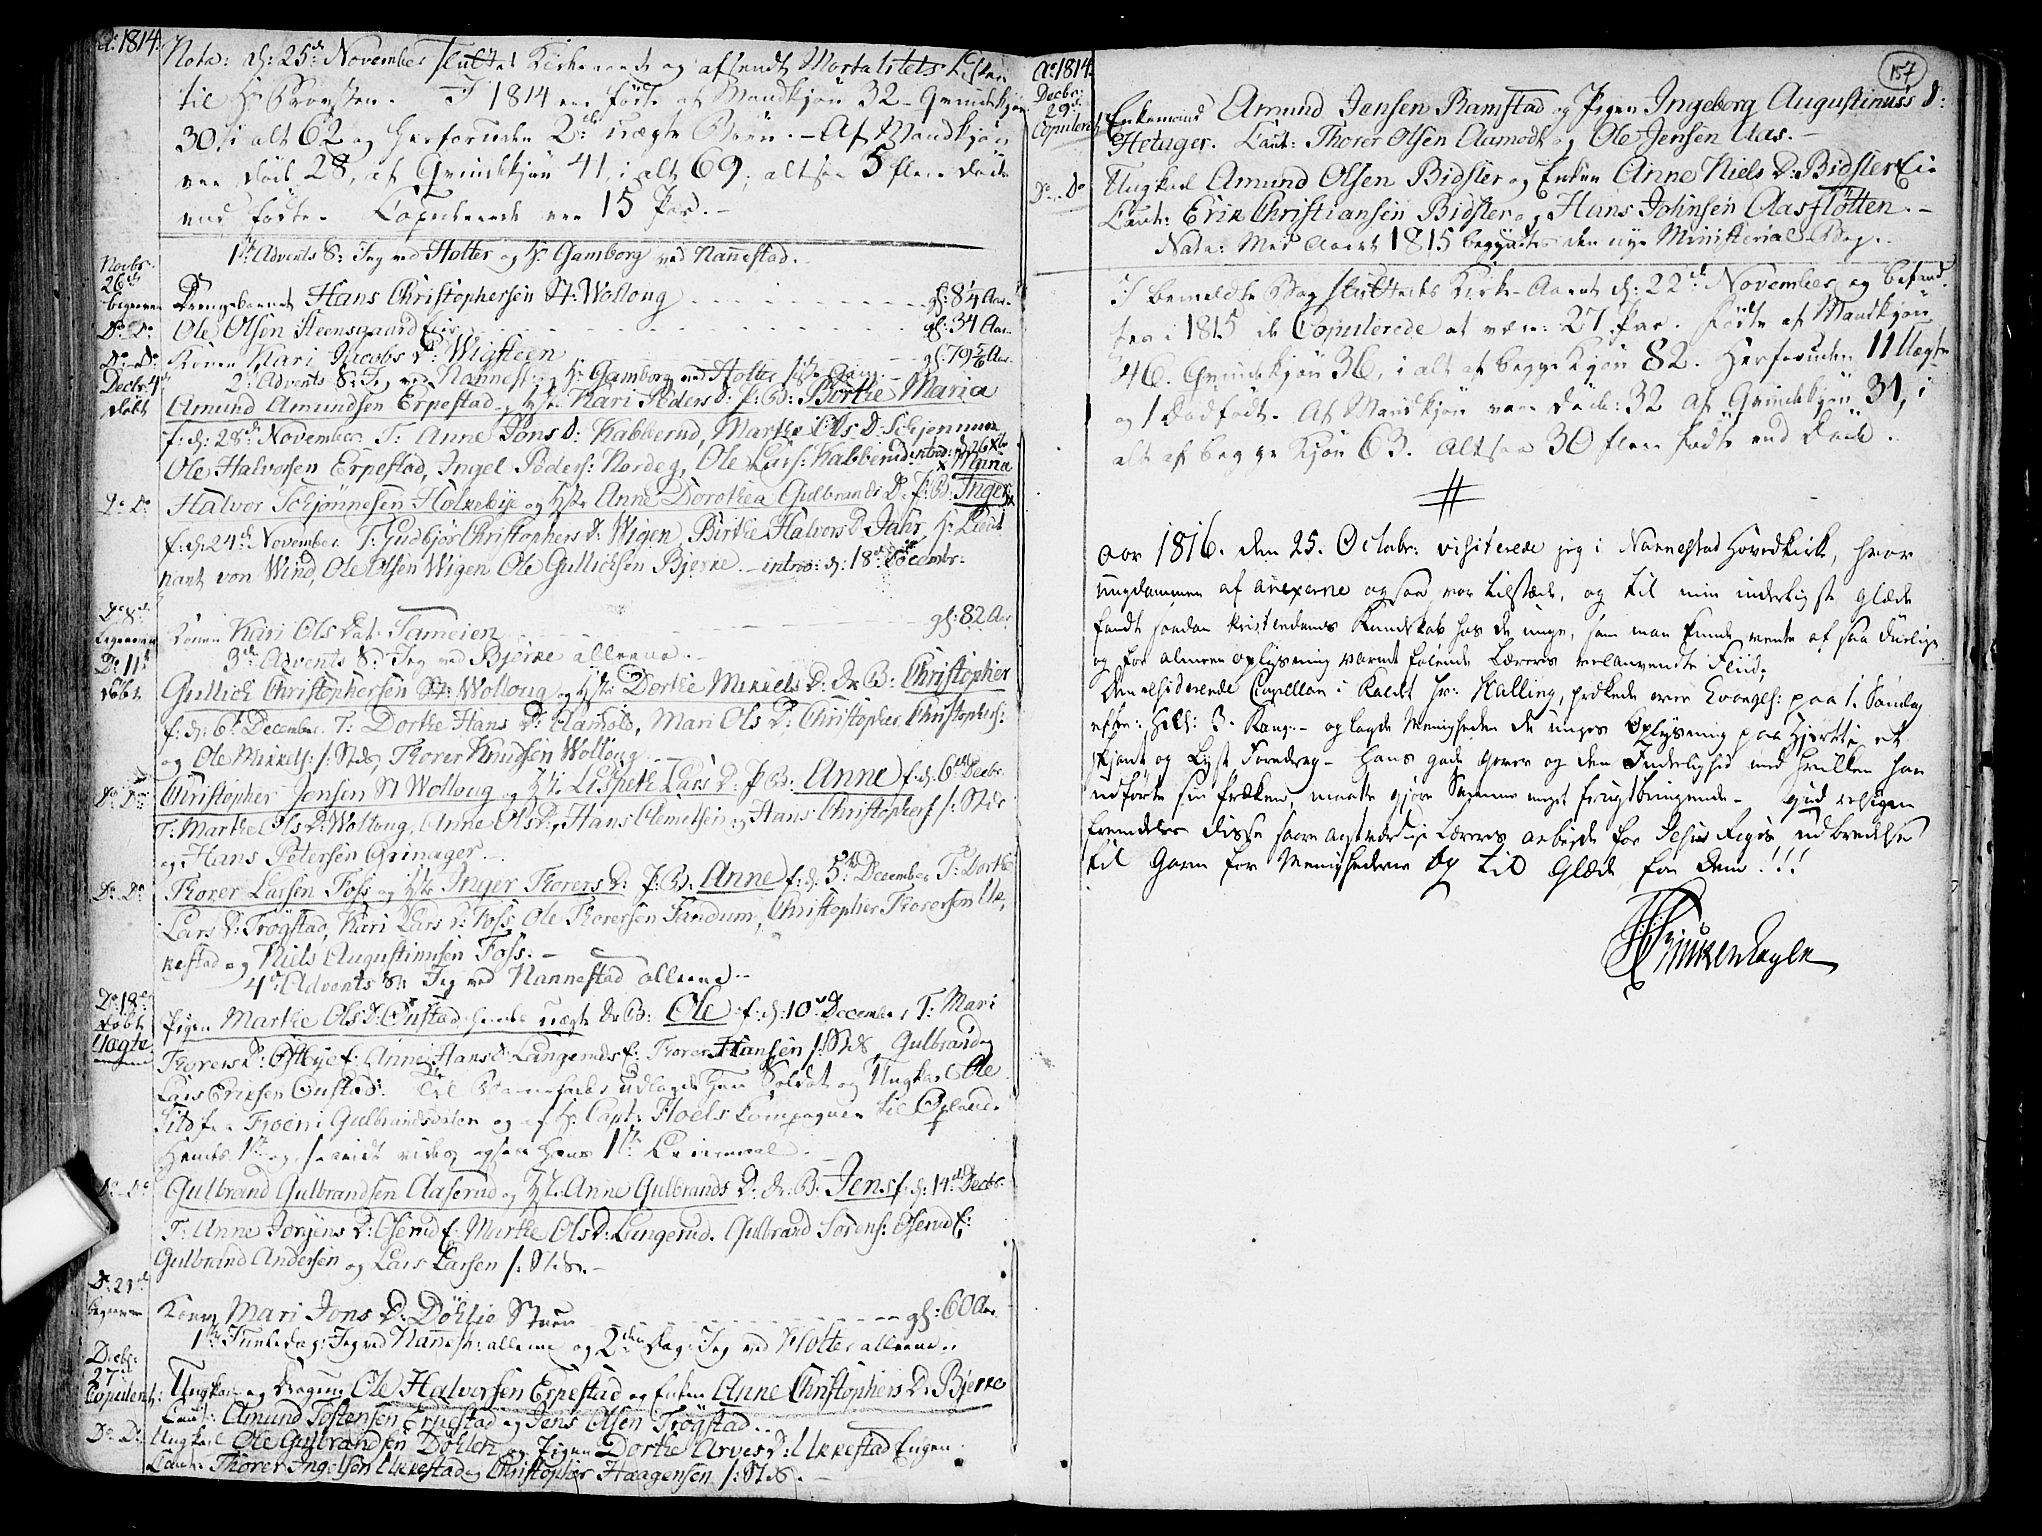 Ao: 1814.
Nota: d: 25de November sluttet Kirkeaaret og afsendt Mortalitets Listen
til Hr Provsten. I 1814 ere fødte af Mandkjøn 32 - Qvindekjøn
30, i alt 62 og herforuden 2de uægte Børn. - Af Mandkjøn
ere døde 28, af Qvindekjøn 41, i alt 69. altsaa 5 flere døde
end fødte. Copulerede ere 15 Par. -
1ste Advents S: Jeg ved Holter og Hr Gamborg ved Nannestad.
Novbr.
26de
begraven Drengebarnet Hans Christophersen St: Wolloug gl: 8/4 Aar
Do Do Ole Olsen Steensgaard Eie gl: 34 Aar
Do Do Konen Kari Jacobs D: Wigsteen gl: 79 5/6 Aar
Decbr 4de 2. Advents S: Jeg ved Nannest: og Hr Gamborg ved Holter
døbt Amund Amundsen Erpestad og Hst: Kari Peders D: P: B: Borthe Maria
f: d: 28de November. T: Anne Jons D: Kabberud, Marthe Ols D: Schjennum
Ole Halvorsen Erpestad, Ingel Peders: Nordeg, Ole Lars: Kabberud introd:
Do Do Halvor Schjønnesen Holkebye og Hst: Anne Dorothea Gulbrands D: P: B: Inger Maria
f: d: 24de November T: Gudbjør Christophers D: Wigen, Birthe Halvors D: Jahr, Hr: Lieut
nant von Wind, Ole Olsen Wigen Ole Gullichsen Bjerke. - introd: d: 18de Decembr:
Do 8de
begraven Konen Kari Ols Dat: Tømeien gl: 82 Aar
Do 11te 3de Advents S: Jeg ved Bjerke alleene. -
døbt Gullich Christophersen St: Wolloug og Hst: Dorthe Mikkels D: Dr: B: Christopher
f: d: 6te December. T: Dorthe Hans D: Aamold, Mari Ols D: Christopher Christophers:
og Ole Mikkels: s: Stds, Thorer Knudsen Wolloug.
Do Do Christopher Jensen St Wolloug og Hst: Lispeth Lars D: P: B: Anne f: d: 6te Decbr.
T: Marthe Ols D: Wolloug, Anne Ols D:, Hans Clemetsen og Hans Christophers: s: Stds
og Hans Petersen Grinager.
Do Do Thorer Larsen Foss og Hst: Inger Thorers D: P: B: Anne f: d: 5te December T: Dorthe
Lars D: Trøgstad, Kari Lars D: Foss, Ole Thorersen Sandum, Christopher Thorersen Uk,
kestad og Niels Augustinusen Foss. -
4de Advents S: Jeg ved Nannestad alleene. -
Do 18de
døbt
Uægte Pigen Marthe Ols D: Onstad hendes uægte Dr: B: Ole f: d: 10de December T: Mari
Thorers D: Østbye E: Anne Hans D: Lungeruds E: Thorer Hansen s: Stds Gulbrand og
Lars Eriksen Onstad: Til Barnefader udlagde hun Soldat og Ungkarl Ole
fra Froen i Gulbrandsdalen og af Hr: Capt: Floels Compagnie til Oplands
Hends 1ste og saavidt vides ogsaa hans 1ste Leiermaal. -
Do Do Gulbrand Gulbrandsen Aaserud og Hst: Anne Gulbrands D: Dr: B: Jens f: d: 14de Decbr.
T: Anne Jorgens D: Oserud E: Marthe Ols D: Lungerud. Gulbrand Sørens: Oserud E:
Gulbrand Andersen og Lars Larsen s: Stds. -
Do 21de
begraven Konen Mari Jons D: Døhlie Stuen gl: 60 Aar
1ste Juuledag: Jeg ved Nannest: alleene og 2den Dag: Jeg ved Holter alleene.
Decbr:
27de
Copulerit: Ungkarl og Dragon Ole Halvorsen Erpestad og Enken Anne Christophers D: Bjerke
Caut: Amund Tostensen Erpestad og Jens Olsen Trøgstad.
Do Do Ungkarl Ole Gulbrandsen Døhlen og Pigen Dorthe Arves D: Ukkestad Eugen.
Caut: Thorer Ingelsen Ukkestad og Christopher Haagensen s: Stds. -
157
Ao 1814.
Decbr:
29de
Copulerit: Enkemand Amund Jensen Ramstad og Pigen Ingeborg Augustinus D:
Hotager. Caut: Thorer Olsen Aamodt og Ole Jensen Aas. -
Do Do Ungkarl Amund Olsen Bidsler og Enken Anne Niels D: Bidsler Eie
Caut: Erik Christiansen Bidsler og Hans Johnsen Aasfløtten. -
Nota: Med Aaret 1815 begyndtes den nye Ministerial-Bog.
I bemeldte Bog sluttedes Kirke-Aaret d: 22de November og befand,
tes i 1815 de Copulerede at være: 27 Par. Fødte af Mandkjøn
46. Qvindekjøn 36, i alt af begge Kjøn 82. Herforuden 11 Uægte
og 1 Dødfødt. Af Mandkjøn vare døde: 32 af Qvindekjøn 31, i
alt af begge Kjøn 63. Altsaa 30 flere fødte end døde.
#
Aar 1816. den 25. Octobr: visiterede jeg i Nannestad Hovedkirke, hvor
ungdommen af anexerne ogsaa var tilstæde, og til min inderligste glæde
fandt saadan kristendoms Kundskab hos de unge, som man kunde vente af saa duelige
og for almeen oplysning varmt følende Læreres velanvendte Fliid.
Den residerende Capellan i Kaldet Hr: Halling, prækede over Evangel: paa 1. Søndag
efter: Hell: 3. Kong. - og lagde Menigheden de unges Oplysning paa Hjertet i et
skjønt og Lyst Foredrag - Hans gode Gaver og den Inderlighed med hvilken han
udførte sin Præken, maatte gjøre Samme meget frugtbringende - Gud velsigne
fremdeles disse saare agtværdige Læreres arbeide for Jesus Riges udbredelse
til Gavn for Menighederne og til Glæde for dem!!!